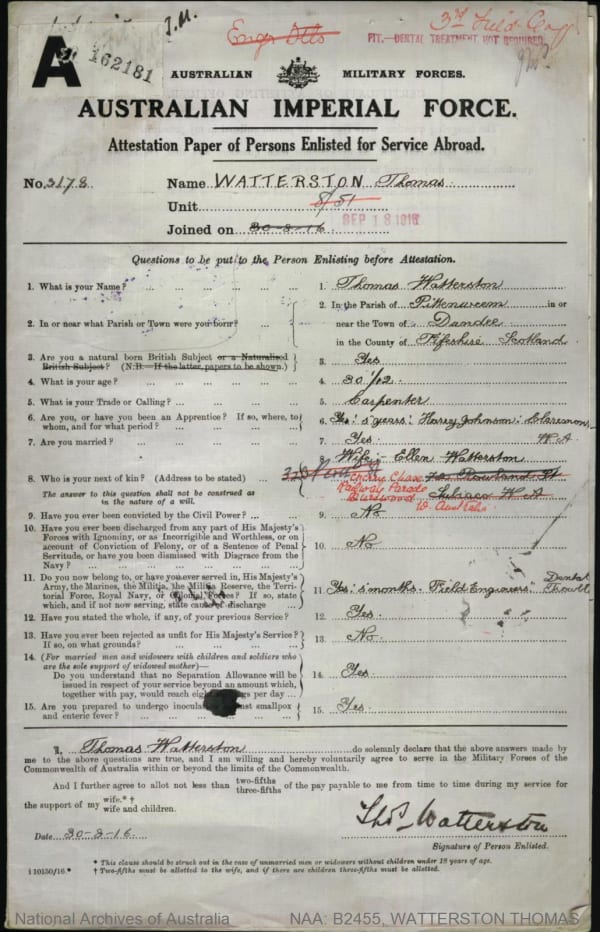 A
162181
I.M.
Engr Ills
3rd Field Coy
FIT.—DENTAL TREATMENT NOT REQUIRED
AUSTRALIAN MILITARY FORCES.
AUSTRALIAN IMPERIAL FORCE.
Attestation Paper of Persons Enlisted for Service Abroad.
No. 3178 Name WATTERSTON Thomas
Unit 8/51
SEP 18 1916
Joined on 30-3-16
Questions to be put to the Person Enlisting before Attestation.
1. What is your Name? ... 1. Thomas Watterston
2. In or near what Parish or Town were you born? ... 2. In the Parish of Pittenweem in or
near the Town of Dundee
in the County of Fifeshire Scotland
3. Are you a natural born British Subject or a Naturalised 3. Yes
British Subject? (N.B.—If the latter, papers to be shown.)
4. What is your age? ... 4. 30 1/12
5. What is your Trade or Calling? ... 5. Carpenter
6. Are you, or have you been an Apprentice? If so, where, to 6. Yes: 5 years: Harry Johnson: Claremont
whom, and for what period? ... W.A
7. Are you married? ... 7. Yes
8. Who is your next of kin? (Address to be stated) ... 8. Wife:- Ellen Watterston
Cherry Chase 70 Rowland St
Railway Parade Subiaco W A
Burswood
W. Australia
The answer to this question shall not be construed as
in the nature of a will.
9. Have you ever been convicted by the Civil Power? ... 9. No
10. Have you ever been discharged from any part of His Majesty's
Forces with Ignominy, or as Incorrigible and Worthless, or on
account of Conviction of Felony, or of a Sentence of Penal 10. No
Servitude, or have you been dismissed with Disgrace from the
Navy? ...
11. Do you now belong to, or have you ever served in, His Majesty's
Army, the Marines, the Militia, the Militia Reserve, the Terri- 11. Yes: 5 months: Field Engineers: Dental
torial Force, Royal Navy, or Colonial Forces? If so, state Trouble
which, and if not now serving, state cause of discharge
12. Have you stated the whole, if any, of your previous Service? 12. Yes
13. Have you ever been rejected as unfit for His Majesty's Service? 13. No
If so, on what grounds? ...
14. (For married men and widowers with children and soldiers who
are the sole support of widowed mother)—
Do you understand that no Separation Allowance will be 14. Yes
issued in respect of your service beyond an amount which,
together with pay, would reach per day ...
15. Are you prepared to undergo against smallpox 15. Yes
and enteric fever? ...
I, Thomas Watterston do solemnly declare that the above answers made by
me to the above questions are true, and I am willing and hereby voluntarily agree to serve in the Military Forces of the
Commonwealth of Australia within or beyond the limits of the Commonwealth.
And I further agree to allot not less than two-fifths three-fifths of the pay payable to me from time to time during my service for
the support of my wife.* † wife and children.
Thos Watterston
Date 30-3-16 Signature of Person Enlisted.
* This clause should be struck out in the case of unmarried men or widowers without children under 18 years of age.
I 10150/16.* † Two-fifths must be allotted to the wife, and if there are children three-fifths must be allotted.
National Archives of Australia NAA: B2455, WATTERSTON THOMAS